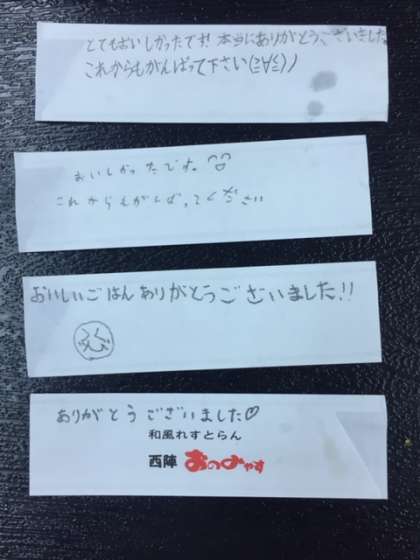 とてもおいしかったです! 本当にありがとうございました
これからもがんばって下さい(≧∀≦)ノ
おいしかったです。
これからもがんばってください
おいしいごはんありがとうございました!!
ありがとうございました♡
和風れすとらん
西陣 おのみやす